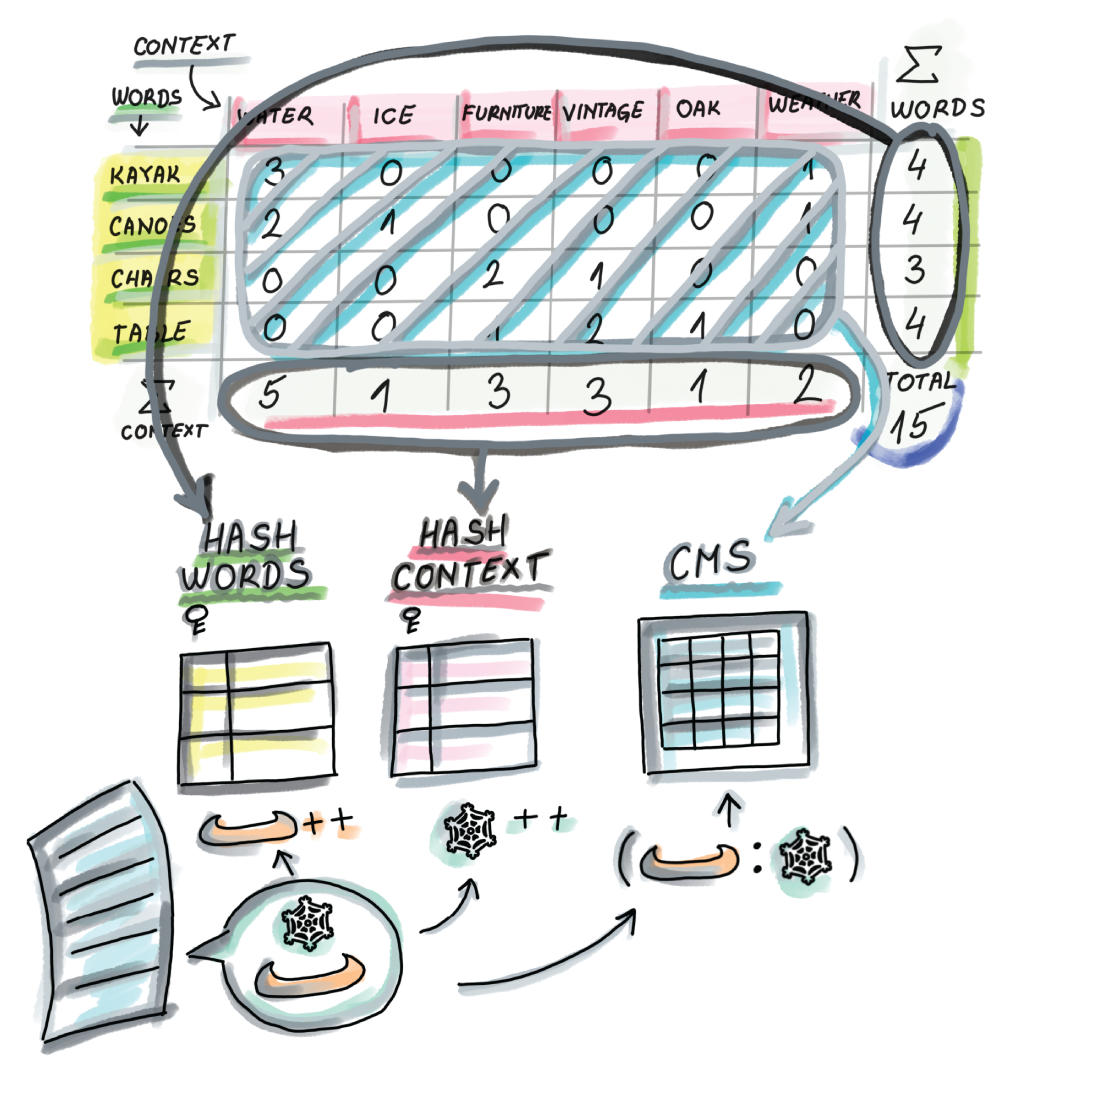 CONTEXT
Σ
WORDS
WORDS
WATER ICE FURNITURE VINTAGE OAK WEATHER
KAYAK 3 0 0 0 0 1 4
CANOES 2 1 0 0 0 1 4
CHAIRS 0 0 2 1 0 0 3
TABLE 0 0 1 2 1 0 4
Σ
CONTEXT
5 1 3 3 1 2
TOTAL
15
HASH
WORDS
HASH
CONTEXT
CMS
++
++
( : )